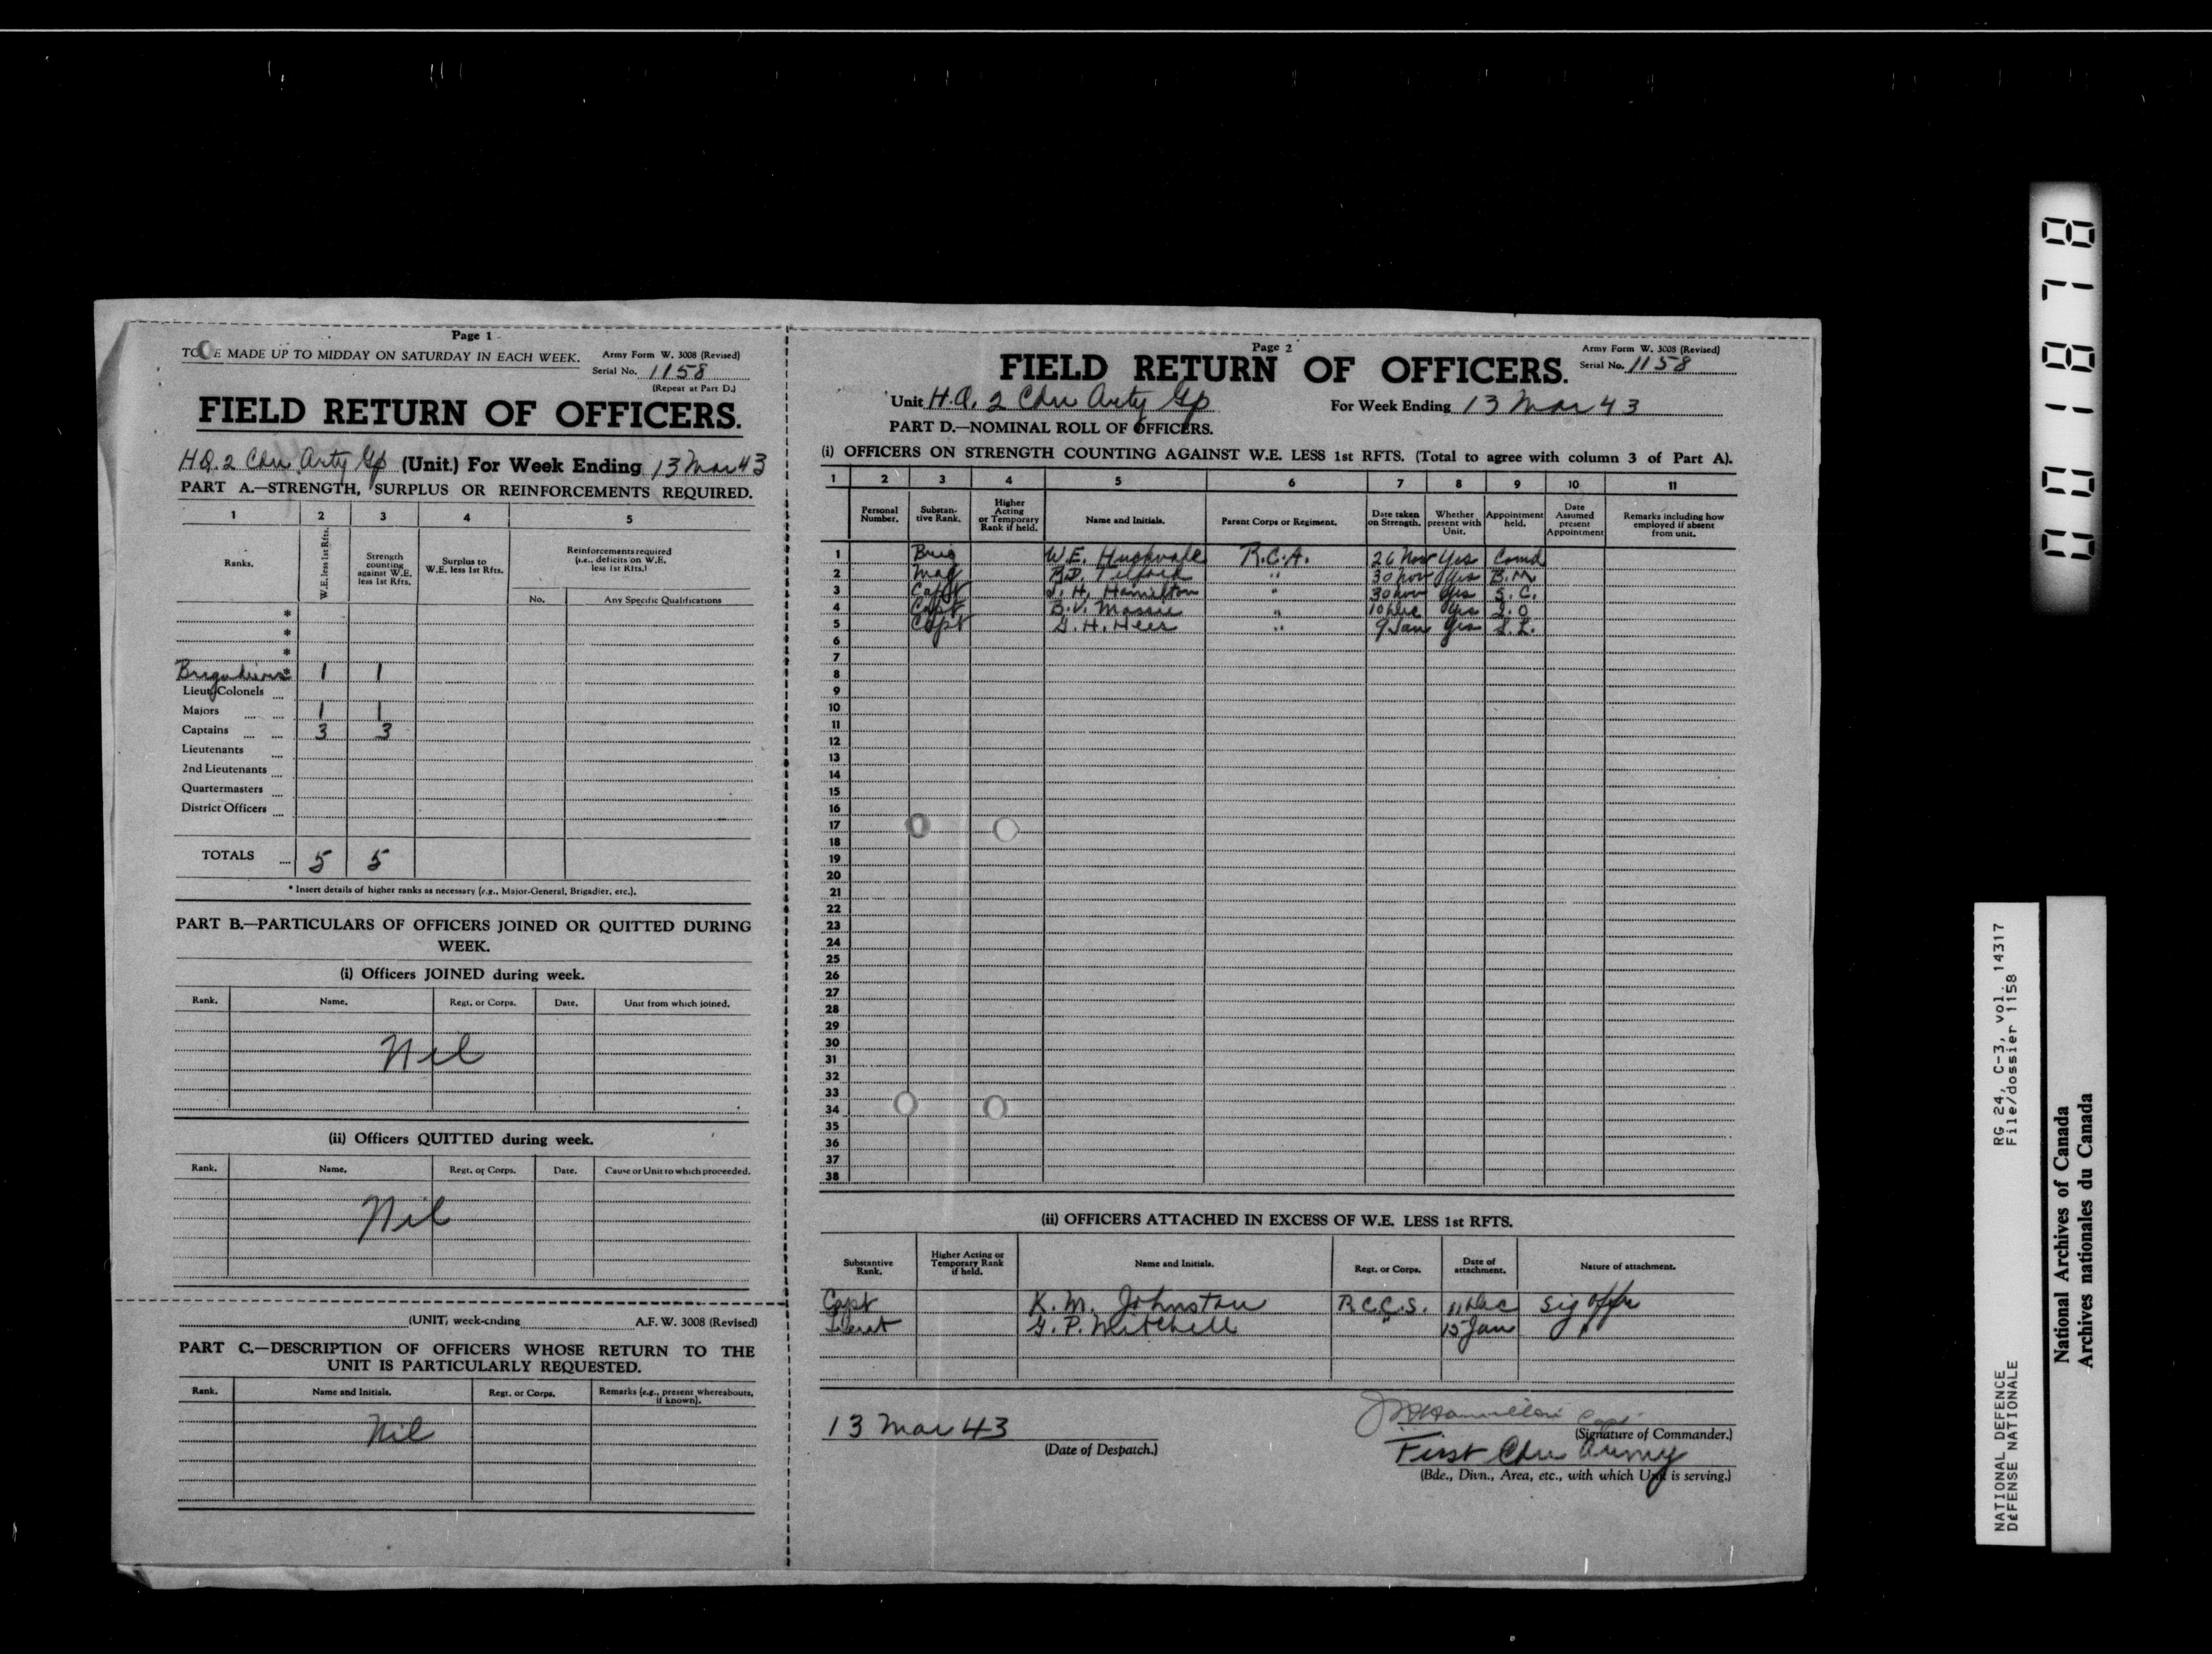 Page 1
TO BE MADE UP TO MIDDAY ON SATURDAY IN EACH WEEK.
Army Form W. 3008 (Revised)
Serial No. 1158
(Repeat at Part D.)
FIELD RETURN OF OFFICERS.
H.Q. 2 Cdn Arty Gp (Unit.) For Week Ending 13 Mar 43
PART A.—STRENGTH, SURPLUS OR REINFORCEMENTS REQUIRED.
1 2 3 4 5
Ranks. W.E. less 1st Rfts. Strength counting against W.E. less 1st Rfts. Surplus to W.E. less 1st Rfts. Reinforcements required (i.e., deficits on W.E. less 1st Rfts.)
No. Any Specific Qualifications
*
*
*
Brigadiers* 1 1
Lieut.-Colonels ....
Majors .... .... 1 1
Captains .... .... 3 3
Lieutenants ....
2nd Lieutenants ....
Quartermasters ....
District Officers ....
TOTALS .... 5 5
* Insert details of higher ranks as necessary (e.g., Major-General, Brigadier, etc.).
PART B.—PARTICULARS OF OFFICERS JOINED OR QUITTED DURING
WEEK.
(i) Officers JOINED during week.
Rank. Name. Regt. or Corps. Date. Unit from which joined.
Nil
(ii) Officers QUITTED during week.
Rank. Name. Regt. or Corps. Date. Cause or Unit to which proceeded.
Nil
(UNIT, week-ending A.F. W. 3008 (Revised)
PART C.—DESCRIPTION OF OFFICERS WHOSE RETURN TO THE
UNIT IS PARTICULARLY REQUESTED.
Rank. Name and Initials. Regt. or Corps. Remarks (e.g., present whereabouts, if known).
Nil
Page 2
Army Form W. 3008 (Revised)
FIELD RETURN OF OFFICERS. Serial No. 1158
Unit H.Q. 2 Cdn Arty Gp For Week Ending 13 Mar 43
PART D.—NOMINAL ROLL OF OFFICERS.
(i) OFFICERS ON STRENGTH COUNTING AGAINST W.E. LESS 1st RFTS. (Total to agree with column 3 of Part A).
1 2 3 4 5 6 7 8 9 10 11
Personal Number. Substantive Rank. Higher Acting or Temporary Rank if held. Name and Initials. Parent Corps or Regiment. Date taken on Strength. Whether present with Unit. Appointment held. Date Assumed present Appointment Remarks including how employed if absent from unit.
1 Brig W.E. Huckvale R.C.A. 26 Nov Yes Comd
2 Maj R.D. Telford " 30 Nov Yes B.M.
3 Capt J.H. Hamilton " 30 Nov Yes S.C.
4 Capt B.V. Massie " 10 Dec Yes I.O
5 Capt G.H. Heer " 9 Jan Yes
6
7
8
9
10
11
12
13
14
15
16
17
18
19
20
21
22
23
24
25
26
27
28
29
30
31
32
33
34
35
36
37
38
(ii) OFFICERS ATTACHED IN EXCESS OF W.E. LESS 1st RFTS.
Substantive Rank. Higher Acting or Temporary Rank if held. Name and Initials. Regt. or Corps. Date of attachment. Nature of attachment.
Capt K.M. Johnston R.C.C.S. 11 Dec Sig Offr
Lieut G.P. Mitchell " 15 Jan "
13 Mar 43
(Date of Despatch.)
J H Hamilton Capt
(Signature of Commander.)
First Cdn Army
(Bde., Divn., Area, etc., with which Unit is serving.)
001878
RG 24, C-3, vol. 14317
File/dossier 1158
NATIONAL DEFENCE
DÉFENSE NATIONALE
National Archives of Canada
Archives nationales du Canada